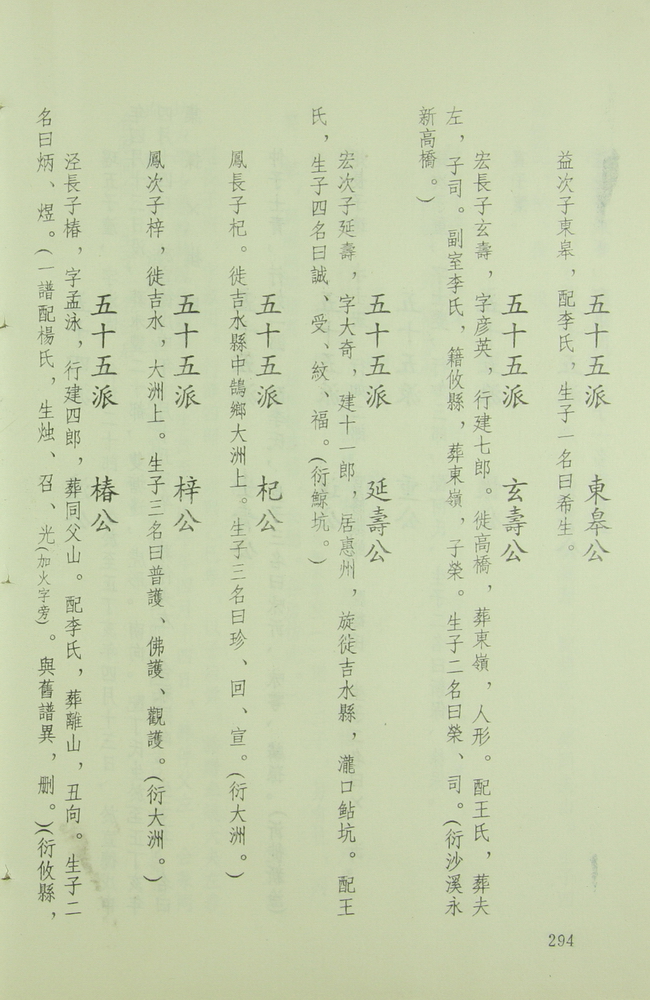 五十五派　東皋公
益次子東皋，配李氏，生子一名曰希生。
五十五派　玄壽公
宏長子玄壽，字彦英，行建七郎。徙高橋，葬東嶺，人形。配王氏，葬夫
左，子司。副室李氏，籍攸縣，葬東嶺，子榮。生子二名曰榮、司。（衍沙溪永
新高橋。）
五十五派　延壽公
宏次子延壽，字大奇，建十一郎，居惠州，旋徙吉水縣，瀧口鲇坑。配王
氏，生子四名曰誠、受、紋、福。（衍鯨坑。）
五十五派　杞公
鳳長子杞。徙吉水縣中鵠鄉大洲上。生子三名曰珍、回、宣。（衍大洲。）
五十五派　梓公
鳳次子梓，徙吉水，大洲上。生子三名曰普護、佛護、觀護。（衍大洲。）
五十五派　椿公
淫長子椿，字孟泳，行建四郎，葬同父山。配李氏，葬離山，丑向。生子二
名曰炳、煜。（一譜配楊氏，生烛、召、光（加火字旁）。與舊譜異，删。）（衍攸縣，
294